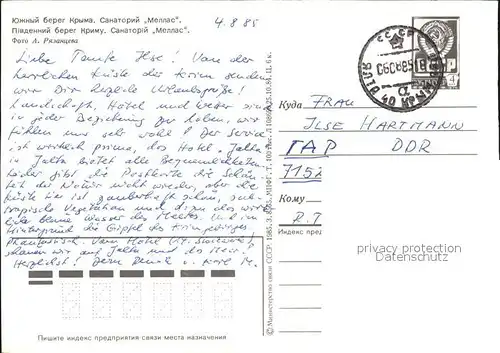 Южный берег Крыма. Санаторий „Меллас".
Південний берег Криму. Санаторій „Меллас".
Фото А. Рязанцева
4.8.85
Liebe Tante Ilse! Von der
herrlichen Küste der Krim senden
wir Dir herzliche Urlaubsgrüße!
Landschaft, Hotel und Wetter sind
in jeder Beziehung zu loben, wir
fühlen uns sehr wohl! Der Service
ist wirklich prima, das Hotel „Jalta
in Jalta bietet alle Bequemlichkeiten.
Leider gibt die Postkarte die Schön-
heit der Natur nicht wieder, aber die
Küste hier ist zauberhaft schön, sub-
tropische Vegetation und dazu das
blaue Wasser des Meeres. Und im
Hintergrund die Gipfel des Krimgebirges
phantastisch. Vom Hotel
schauen wir auf Jalta und das Meer.
Herzlichst! Deine
Пишите индекс предприятия связи места назначения
© Министерство связи СССР. 1985.
СССР
060885 18
Куда
Frau
Ilse Hartmann
ГДР DDR
7152
Кому
Индекс пред
privacy protection
Datenschutz